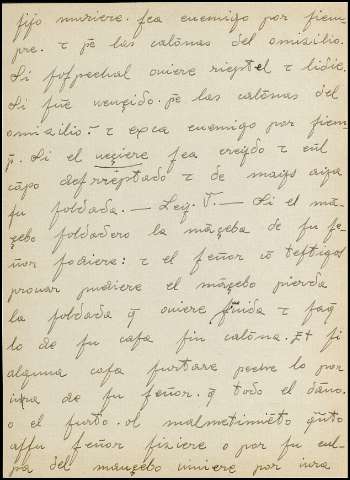 fijo muriere. sea enemigo por siem-
pre. τ pē las calōnas del omizilio.
Si sospechal ouiere rieptel τ lidie.
Si fuē uençido. pē las calōnas del
omizilio: τ exca enemigo por siem-
p̄. Si el ueçiere sea creydo τ eñl
cāpo desrreptado τ de mays aya
su soldada. — Ley. V. — Si el mā-
çebo soldadero la māçeba de su se-
ñor fodiere: τ el señor cō testigos
prouar pudiere el māçebo pierda
la soldada q̄ ouiere τ
lo de su casa sin calōna. Et si
alguna cosa furtare peche lo por
iura de su señor. q̄ todo el dāno.
o el furto. ol malmetimiēto q̄nto
assu señor fiziere o por su cul-
pa del mançebo uiniere por iura